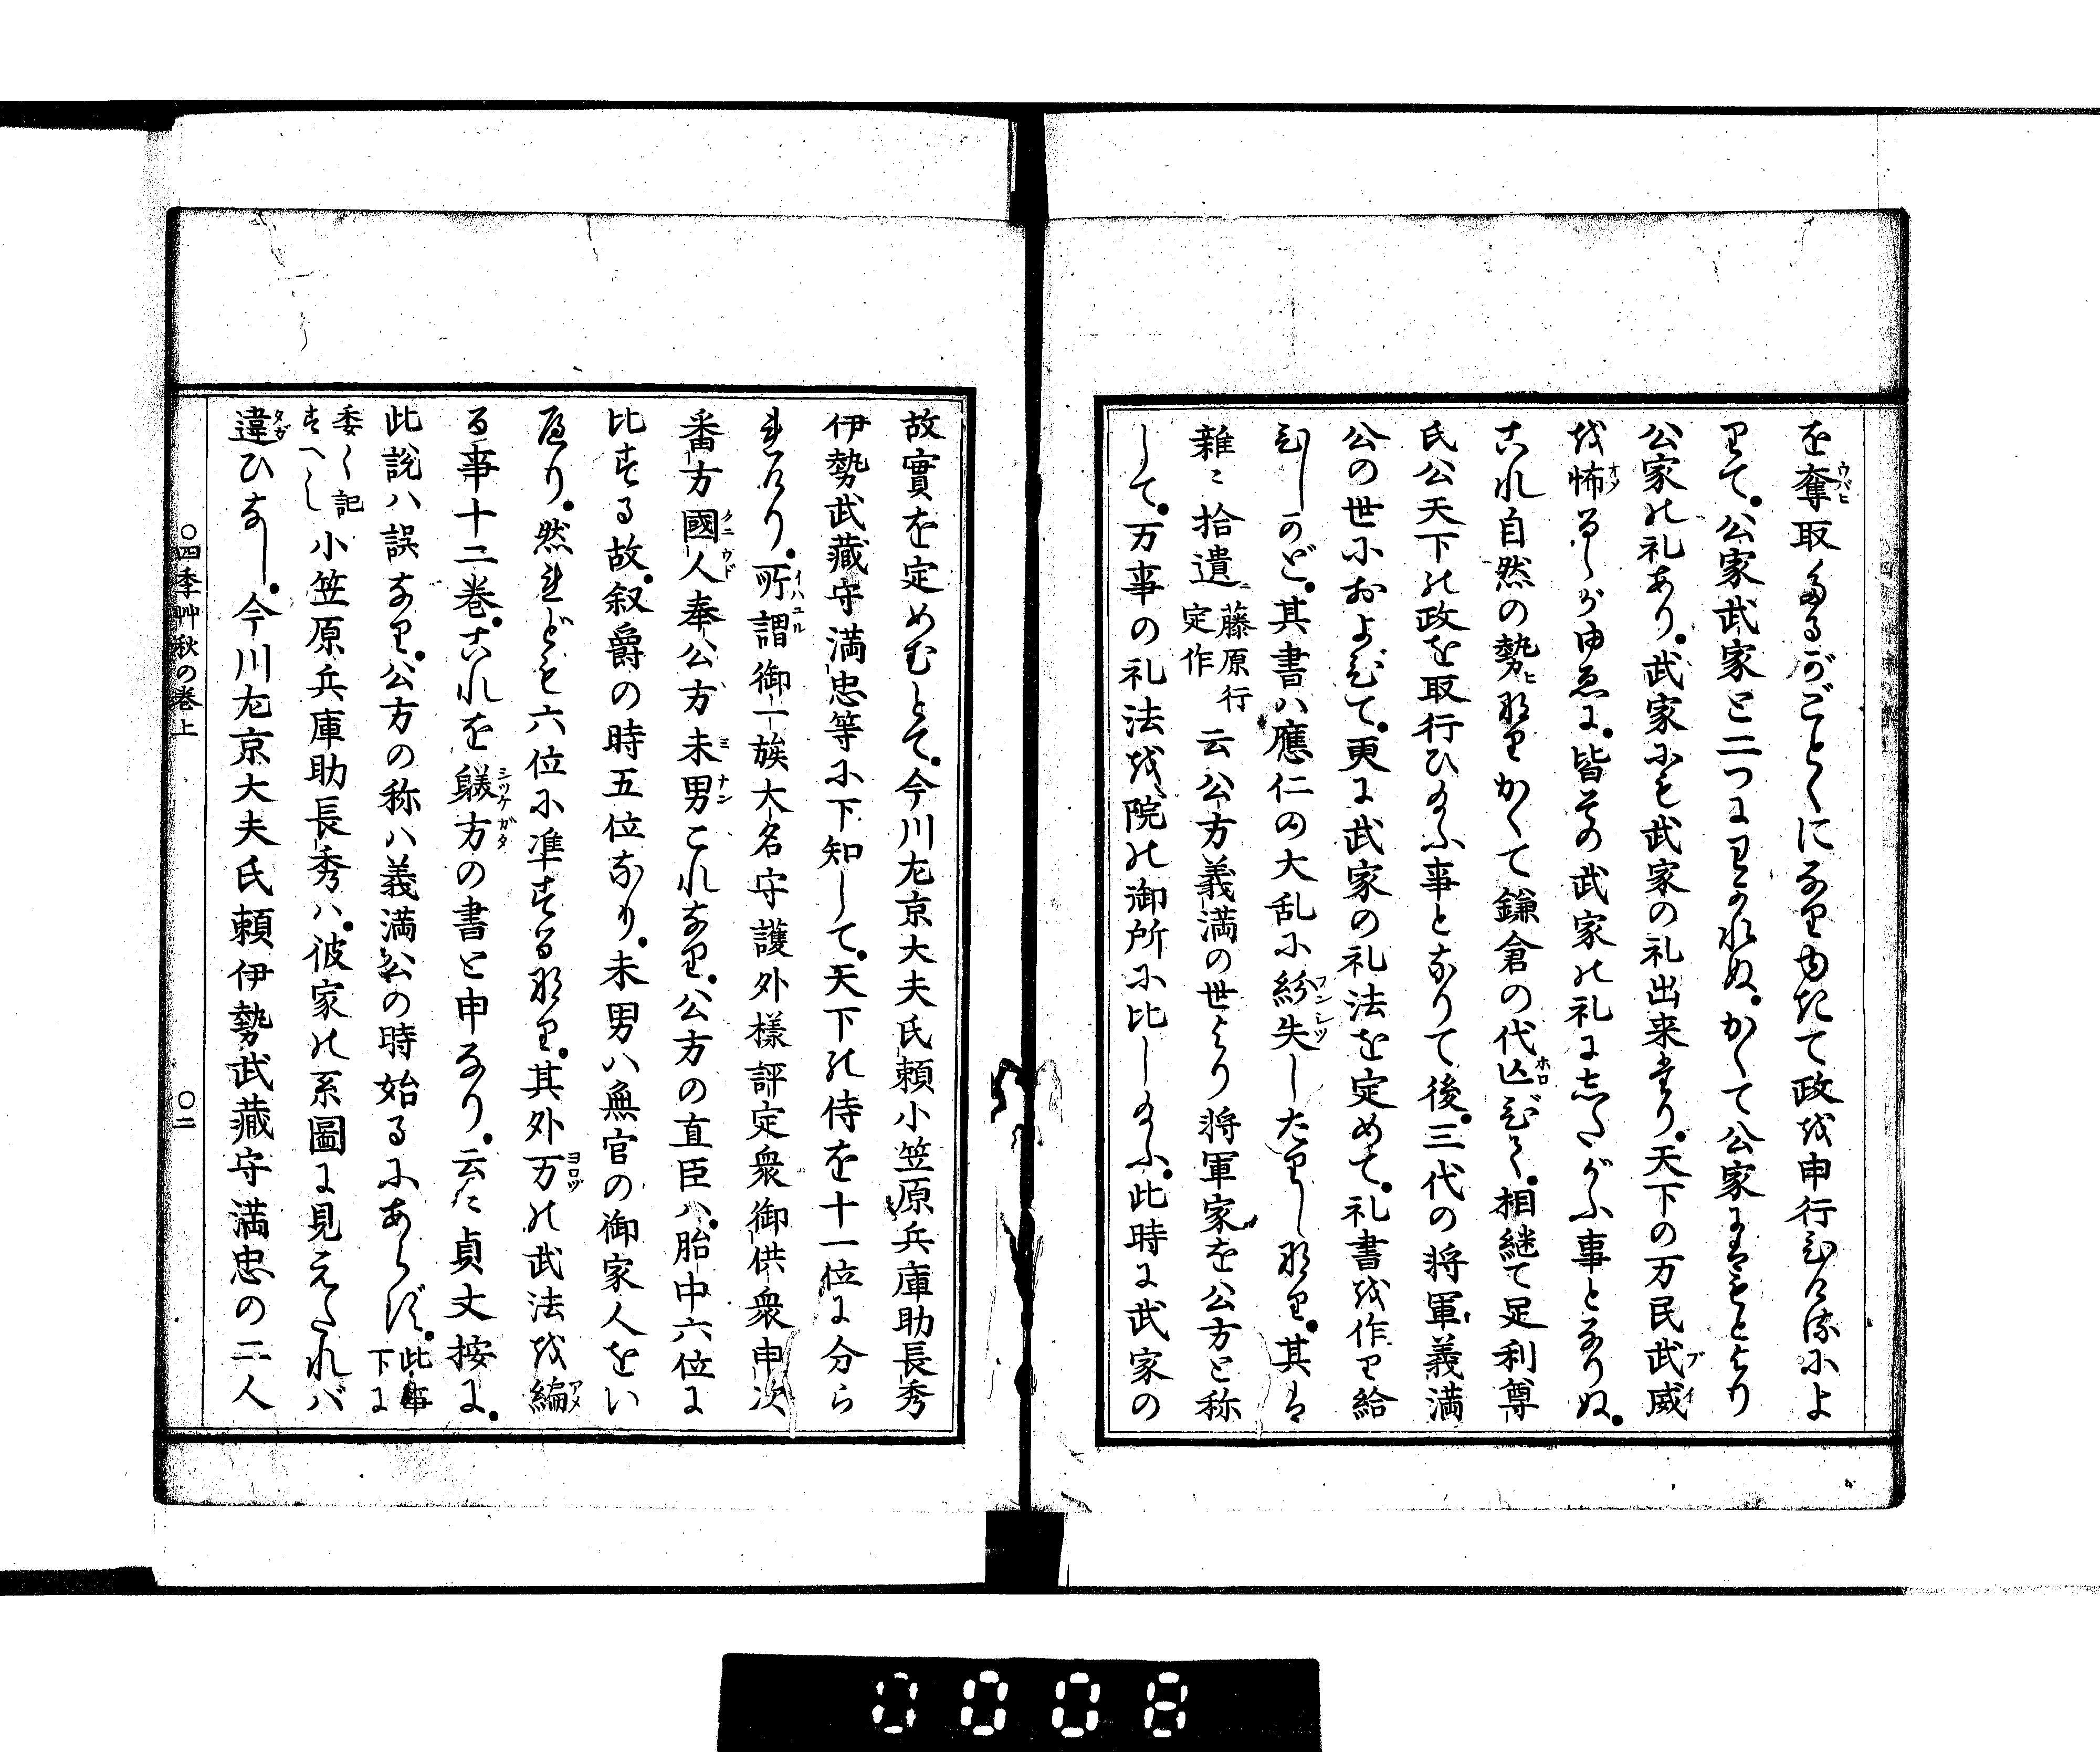 を奪取たるがごとくになりゆきて政を申行ひけるによ
りて。公家武家と二つにわかれぬ。かくて公家にはもとより
公家の礼あり。武家にも武家の礼出来たり。天下の万民武威
を怖るゝがゆゑに。皆その武家の礼にしたがふ事となりぬ。
これ自然の勢ヒなりかくて鎌倉の代亡びて。相継て足利尊
氏公天下の政を取行ひ給ふ事となりて後。三代の将軍義満
公の世におよびて。更に武家の礼法を定めて。礼書を作り給
ひしかど。其書ハ應仁の大乱に紛失したりしなり。其は
雜〻拾遺ニ藤原行定作云公方義満の世より将軍家を公方と称
して。万事の礼法を院の御所に比し給ふ。此時に武家の
故實を定めむとて。今川左京大夫氏頼小笠原兵庫助長秀
伊勢武藏守満忠等に下知して。天下の侍を十一位に分ら
れけり。所謂御一族大名守護外様評定衆御供衆申次
番方國人奉公方未男これなり。公方の直臣ハ。胎中六位に
比する故。叙爵の時五位なり。未男ハ無官の御家人をい
へり。然れども六位に準するなり。其外万の武法を編
る事十二巻。これを躾方の書と申なり。云〻貞丈按に。
此説ハ誤なり。公方の称ハ義満公の時始るにあらず。此事下に
委く記すへし小笠原兵庫助長秀ハ。彼家の系圖に見えたれバ
違ひなし。今川左京大夫氏頼伊勢武藏守満忠の二人
○四季艸秋の巻上 ○二
0008